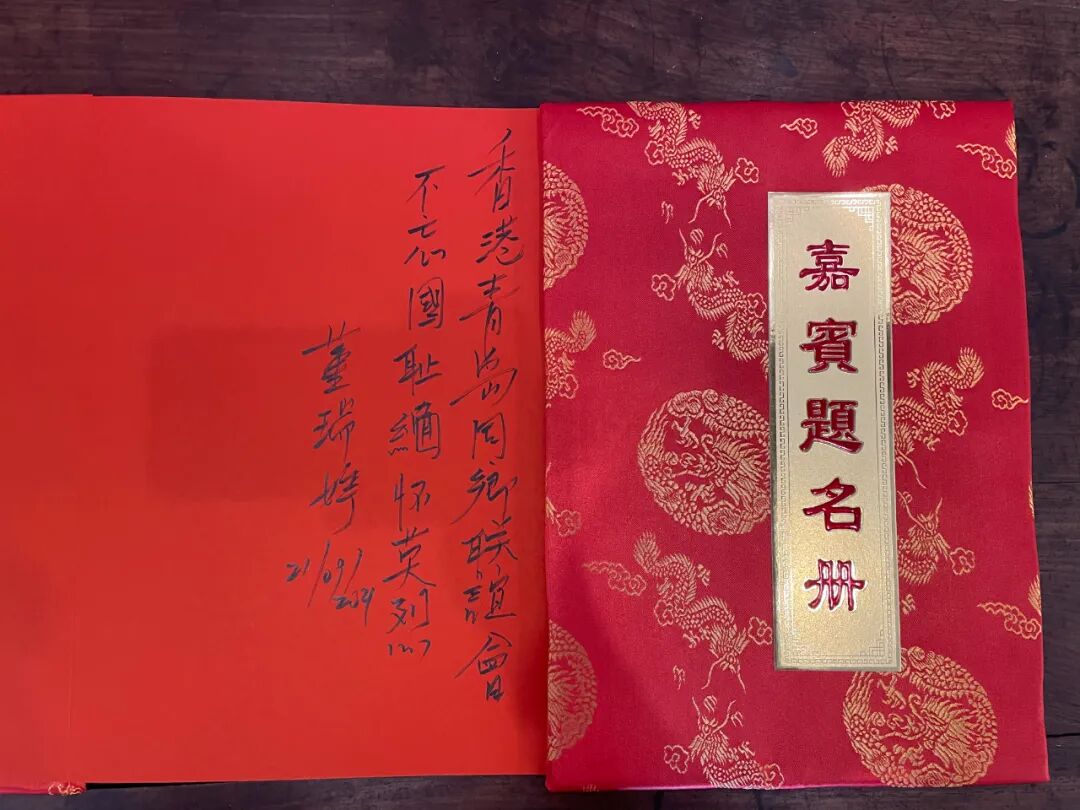 嘉賓題名册
香港青島同鄉联誼會
不忘國耻緬怀英烈
董瑞婷
21/09/2024